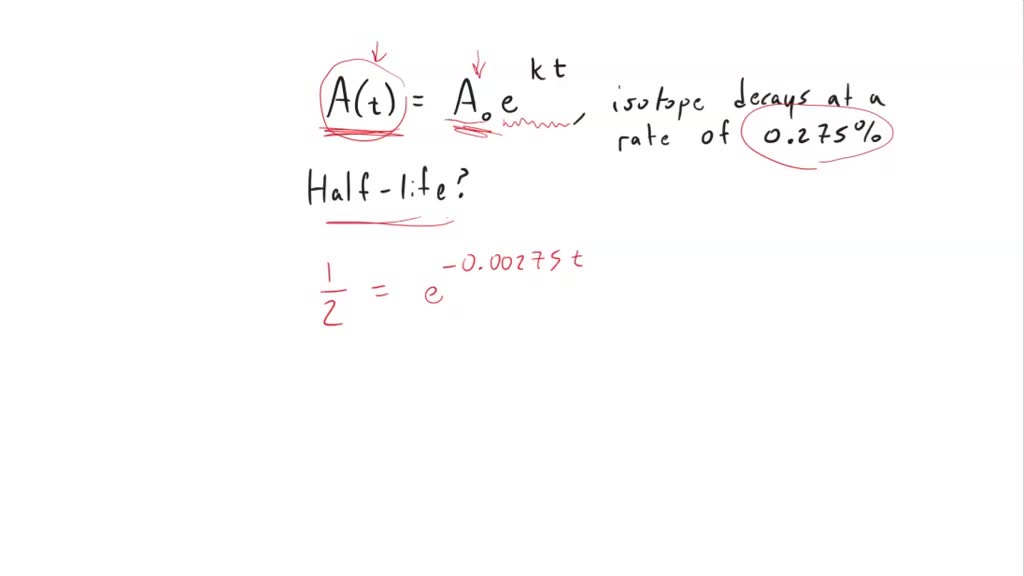 A(t) = A₀ e^kt, isotope decays at a
rate of 0.275%
Half-life?
1/2 = e^-0.00275t